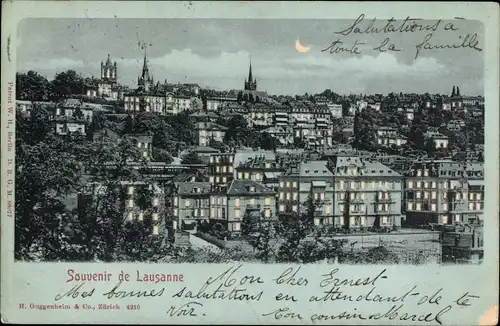 Salutations à
toute la famille
Patent W. Hagelberg, Berlin D. R. G. M 88077
Souvenir de Lausanne
H. Guggenheim & Co., Zürich 4216
Mon Cher Ernest
Mes bonnes salutations en attendant de te
voir.
Ton cousin Marcel